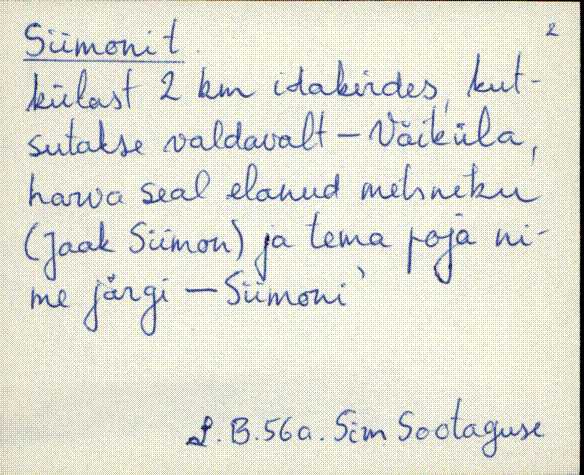 2
Siimonit
külast 2 km idakirdes, kut-
sutakse valdavalt - Väiküla,
harva seal elanud metsniku
(Jaak Siimon) ja tema poja ni-
me järgi - Siimoni
L. B. 56a. Sim Sootaguse